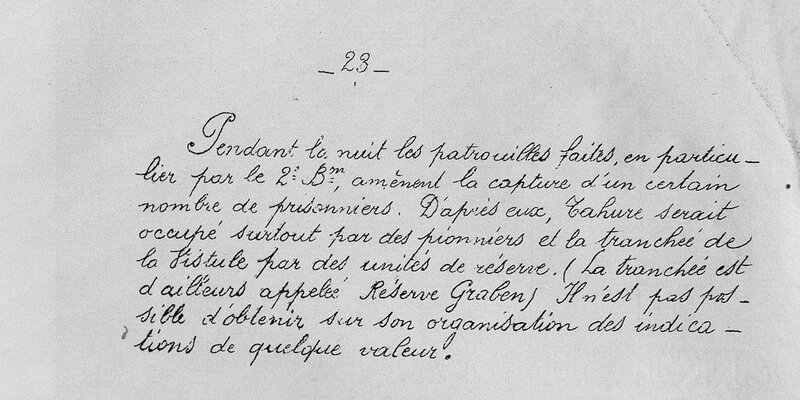 _ 23 _
Pendant la nuit les patrouilles faites, en particu_
lier par le 2e Bon, amènent la capture d'un certain
nombre de prisonniers. D'après eux, Tahure serait
occupé surtout par des pionniers et la tranchée de
la Vistule par des unités de réserve. (La tranchée est
d'ailleurs appelée Réserve Graben) Il n'est pas pos_
sible d'obtenir sur son organisation des indica_
tions de quelque valeur.